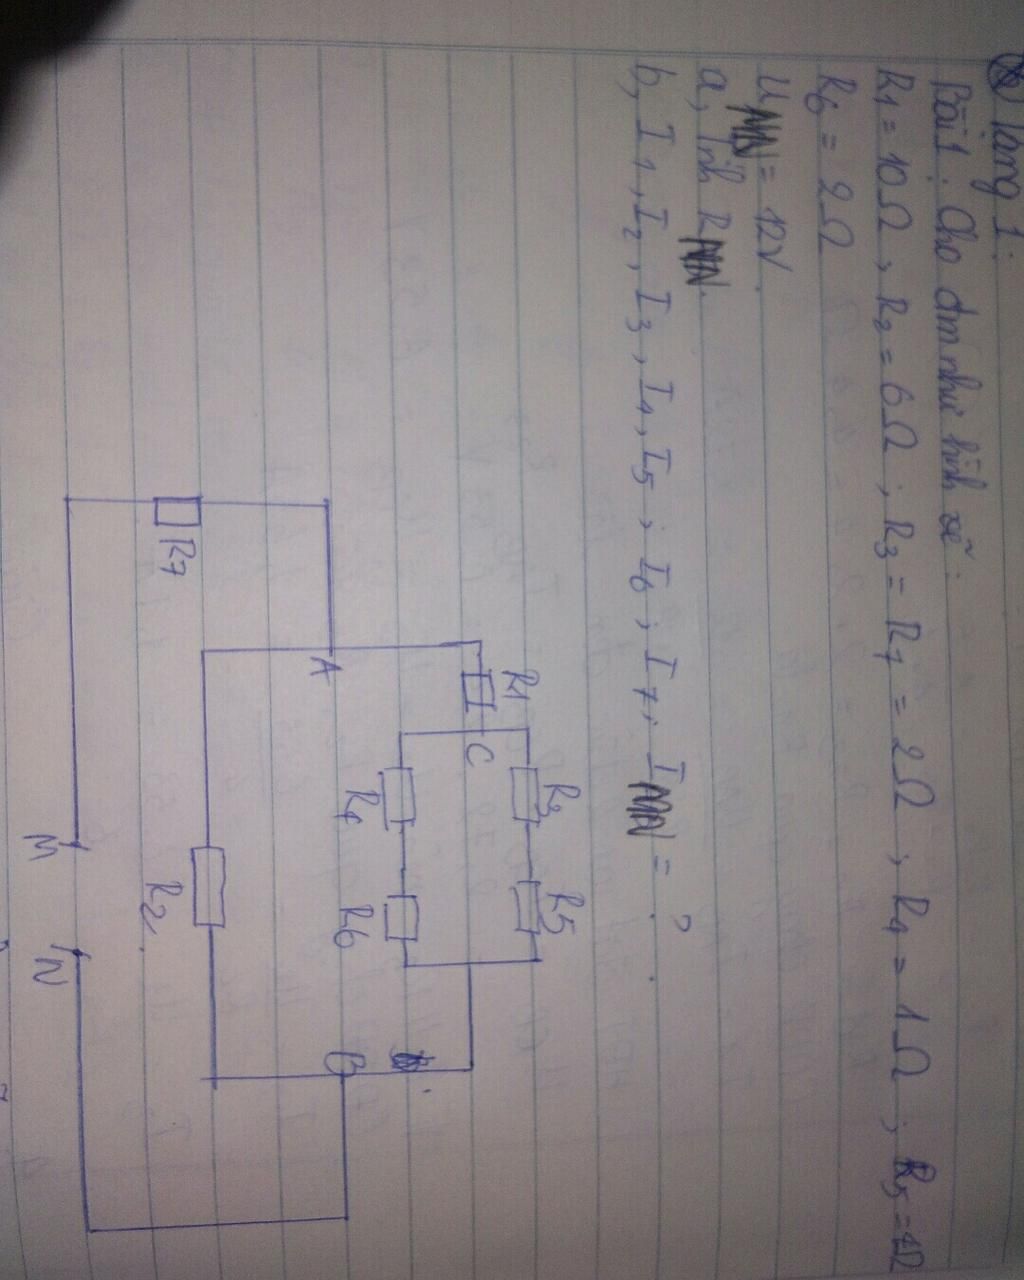 Dạng 1:
Bài 1: Cho đm như hình vẽ:
R1 = 10Ω, R2 = 6Ω; R3 = R7 = 2Ω, R4 = 1Ω; R5 = 4Ω
R6 = 2Ω
UMN = 12V.
a, Tính RMN.
b, I1, I2, I3, I4, I5, I6, I7, IMN = ?
R1
R3
R5
C
R4
R6
A
B
R7
R2
M
N